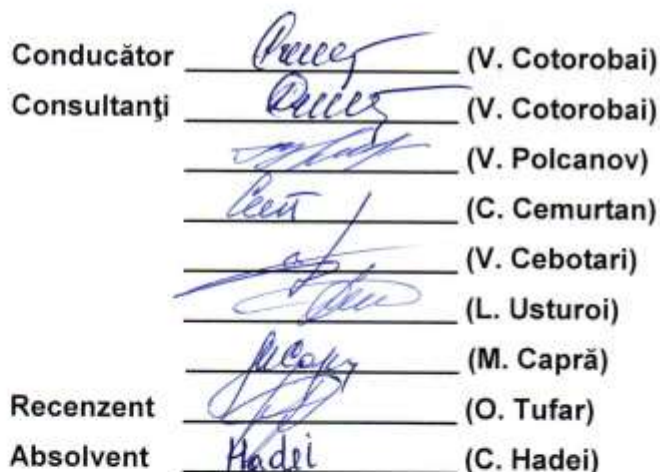 Conducător (V. Cotorobai)
Consultanţi (V. Cotorobai)
(V. Polcanov)
(C. Cemurtan)
(V. Cebotari)
(L. Usturoi)
(M. Capră)
Recenzent (O. Tufar)
Absolvent Hadei (C. Hadei)